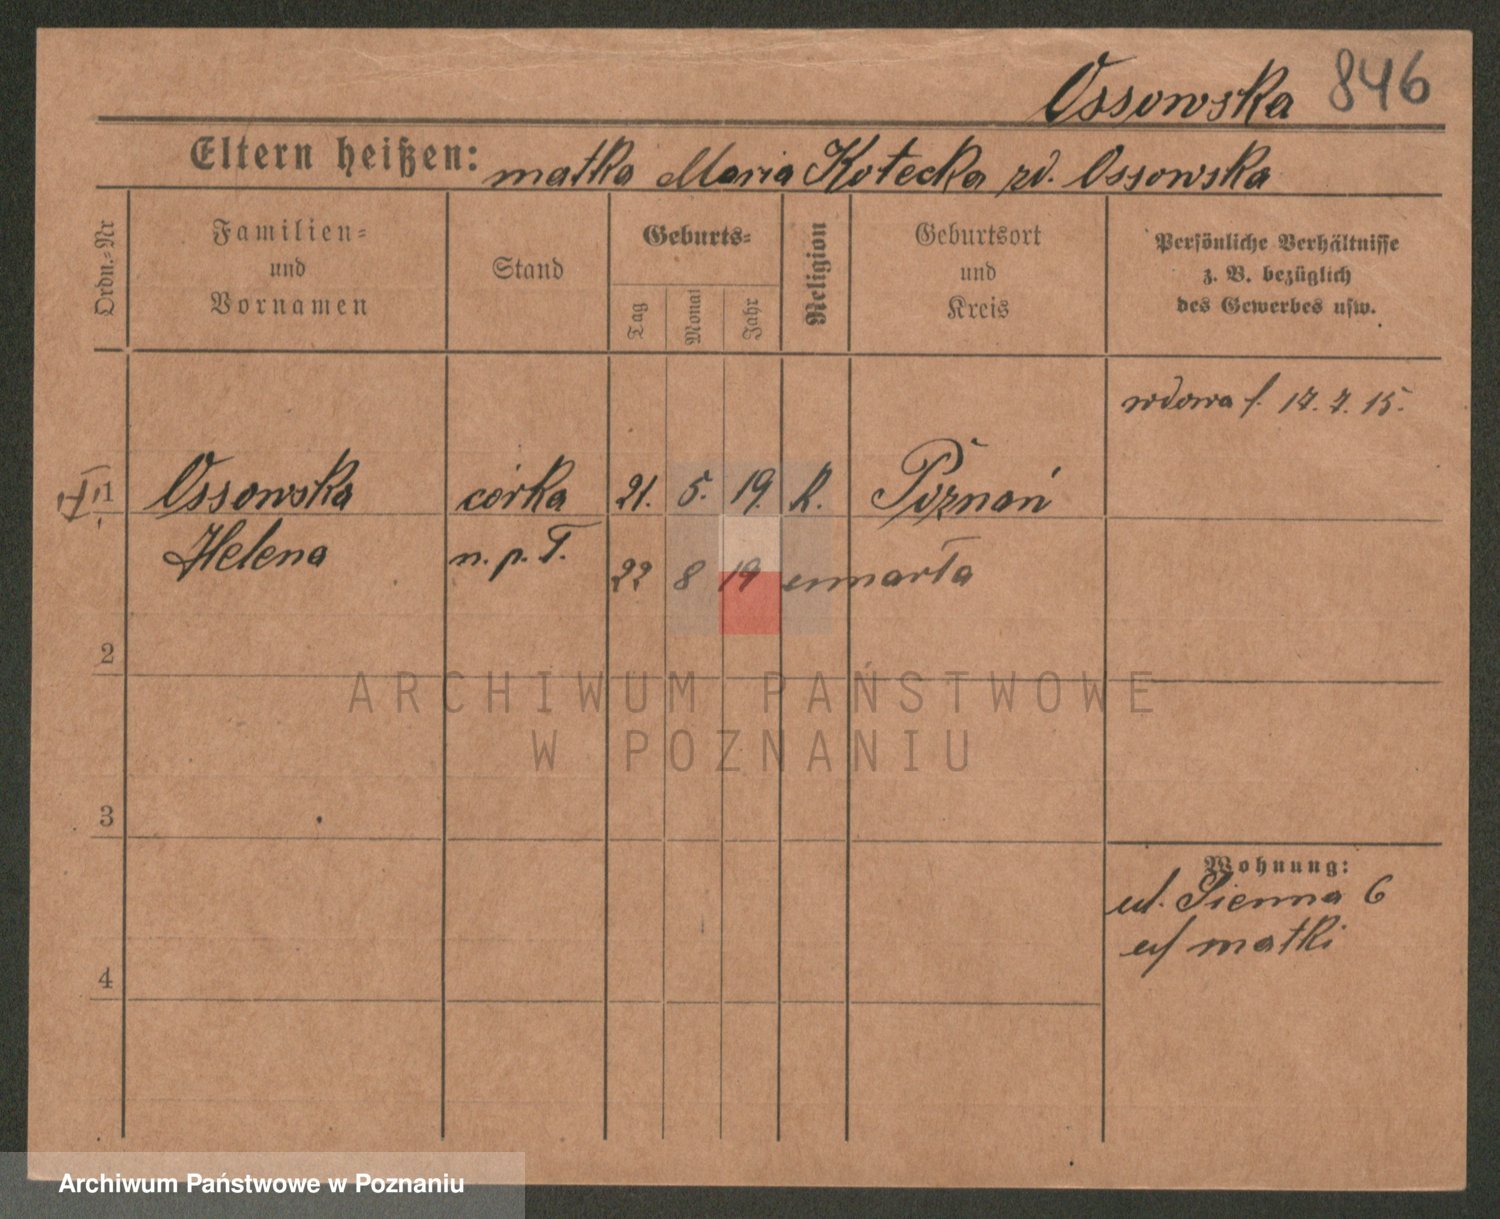 Ossowska 846
Eltern heißen: matka Maria Kotecka zd. Ossowska
Ordn.-Nr
Familien-
und
Vornamen
Stand
Geburts-
Tag
Monat
Jahr
Religion
Geburtsort
und
Kreis
Persönliche Verhältnisse
z. B. bezüglich
des Gewerbes usw.
wdowa f. 17. 7. 15.
1 Ossowska córka 21. 5. 19. k. Poznań
Helena n. p. T.
22 8 19 umarła
2
ARCHIWUM PAŃSTWOWE
W POZNANIU
3
4
Wohnung:
ul. Sienna 6
u/ matki
Archiwum Państwowe w Poznaniu